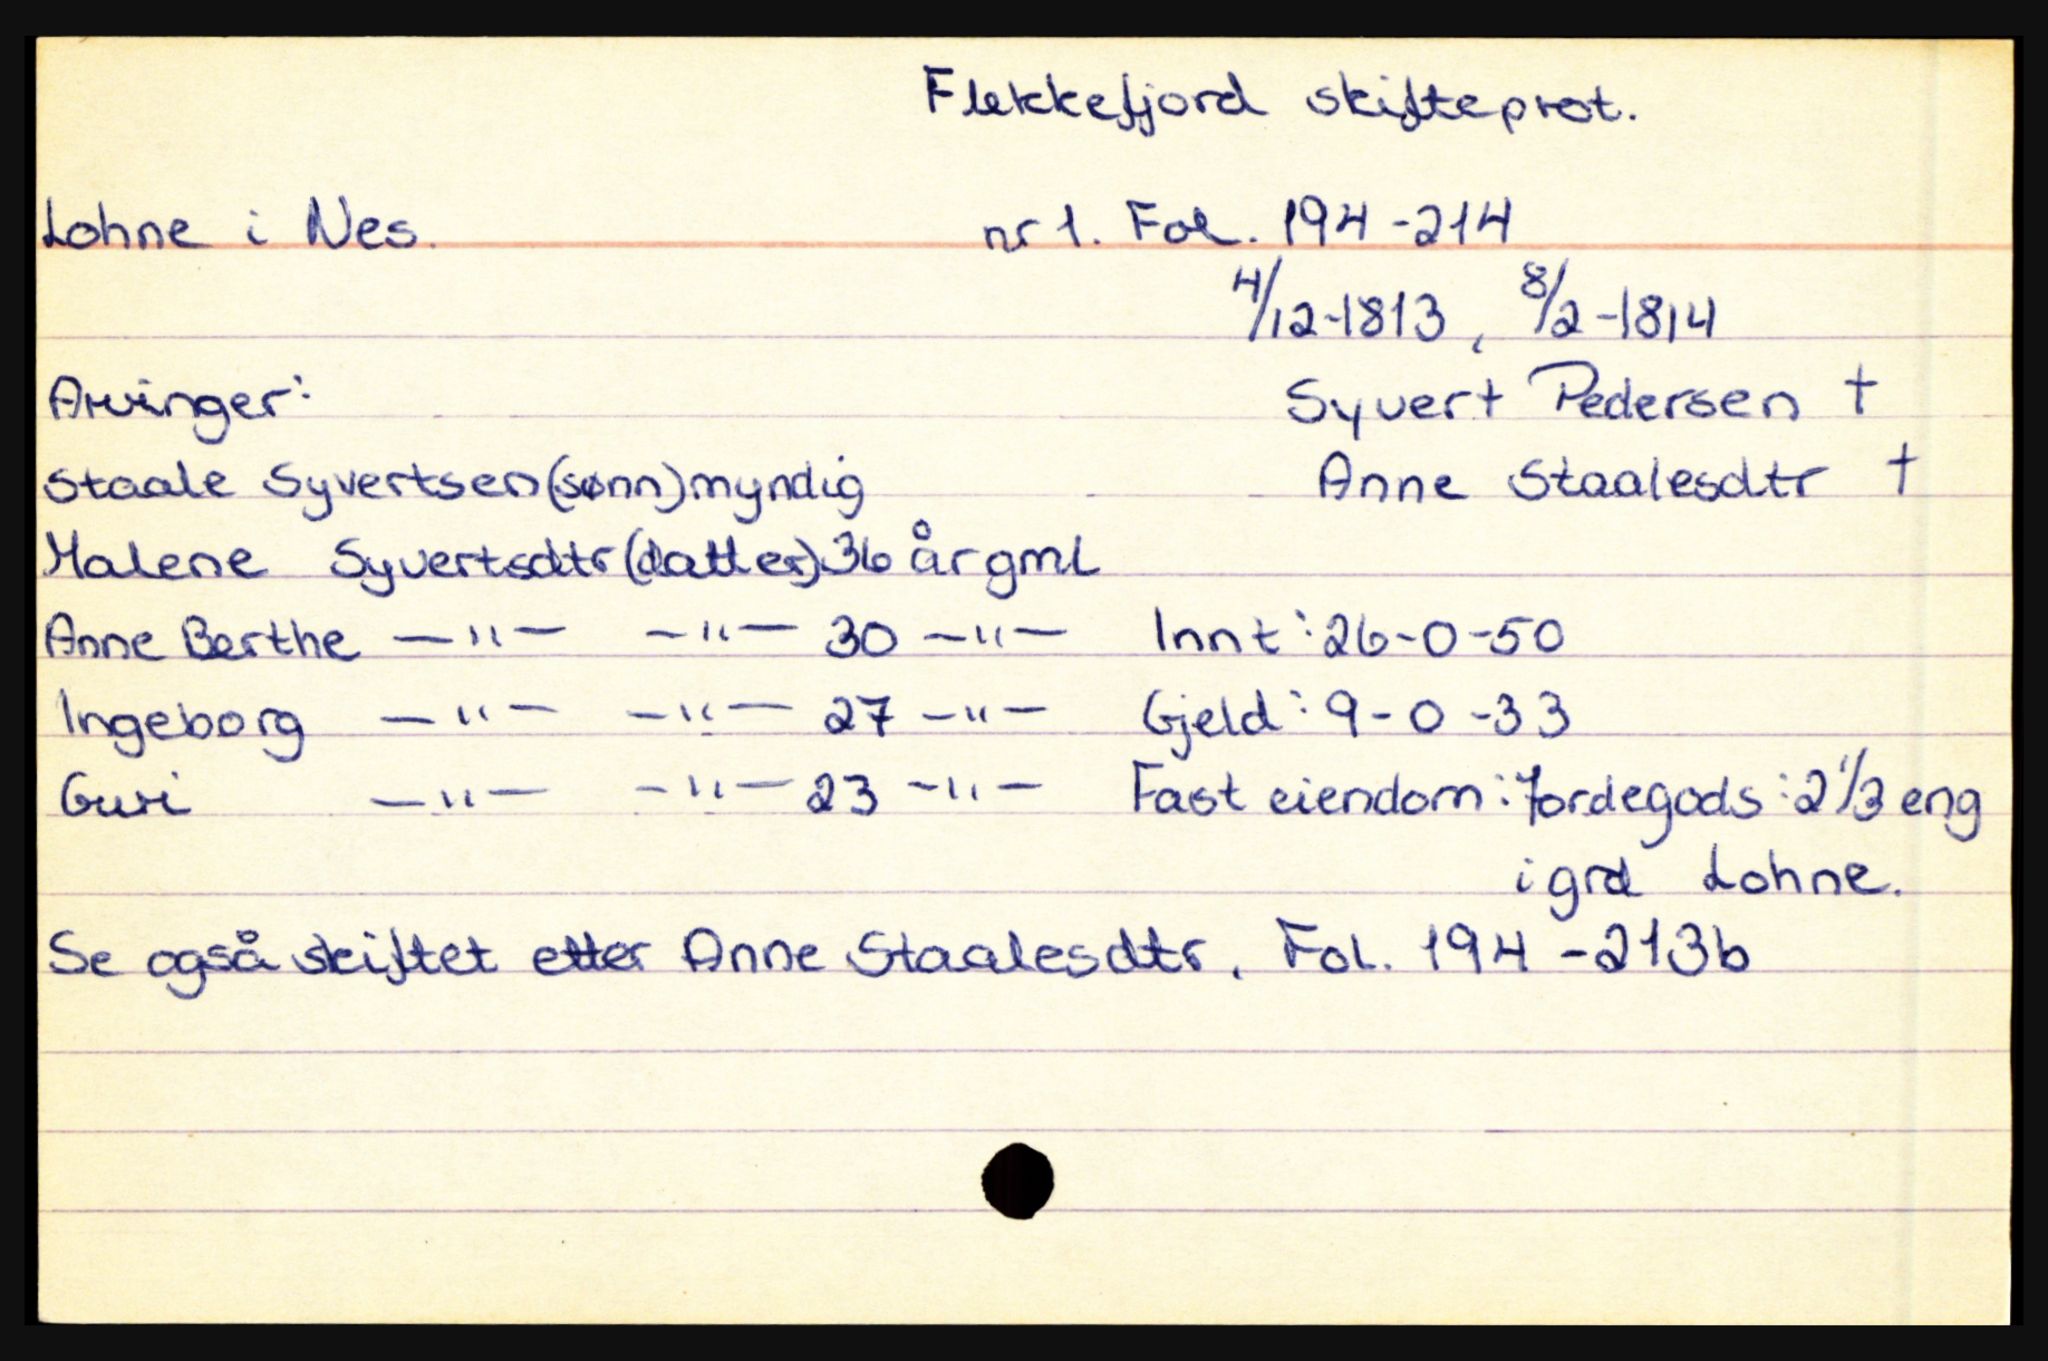 Flekkefjord skifteprot.
Lohne i Nes. nr 1. Fol. 194-214
4/12-1813, 8/2-1814
Arvinger: Syvert Pedersen †
Staale Syvertsen (sønn) myndig Anne Staalesdtr †
Malene Syvertsdtr (datter) 36 år gml
Anne Berthe —"— —"— 30 —"— Innt: 26-0-50
Ingeborg —"— —"— 27 —"— Gjeld: 9-0-33
Guri —"— —"— 23 —"— Fast eiendom: Jordegods: 2 1/3 eng
i grd Lohne.
Se også skiftet etter Anne Staalesdtr. Fol. 194-213b